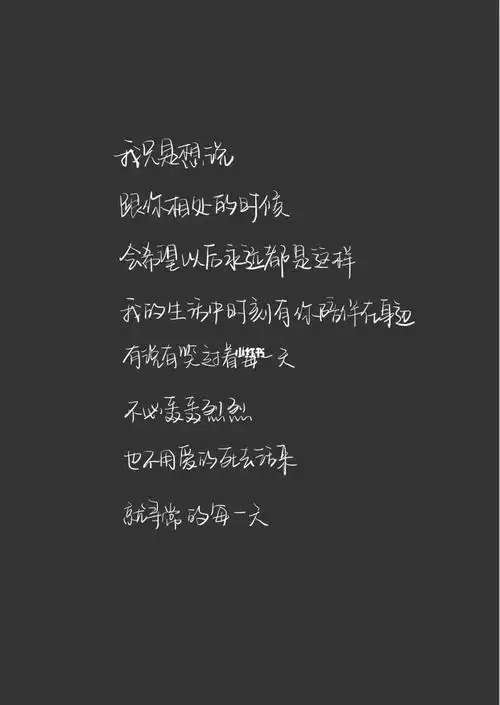 我只是想说
跟你相处的时候
会希望以后永远都是这样
我的生活中时刻有你陪伴在身边
有说有笑过着每一天
小红书
不必轰轰烈烈
也不用爱的死去活来
就寻常的每一天